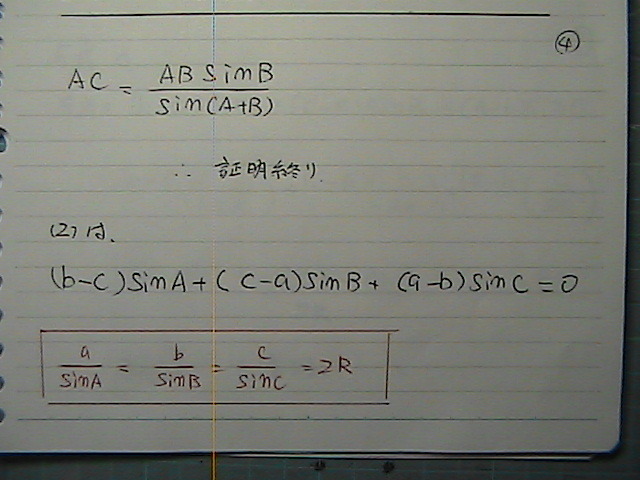 ④
AC = AB sinB / sin(A+B)
∴ 証明終り.
(2)は、
(b-c)sinA+(c-a)sinB+(a-b)sinC=0
a/sinA = b/sinB = c/sinC =2R